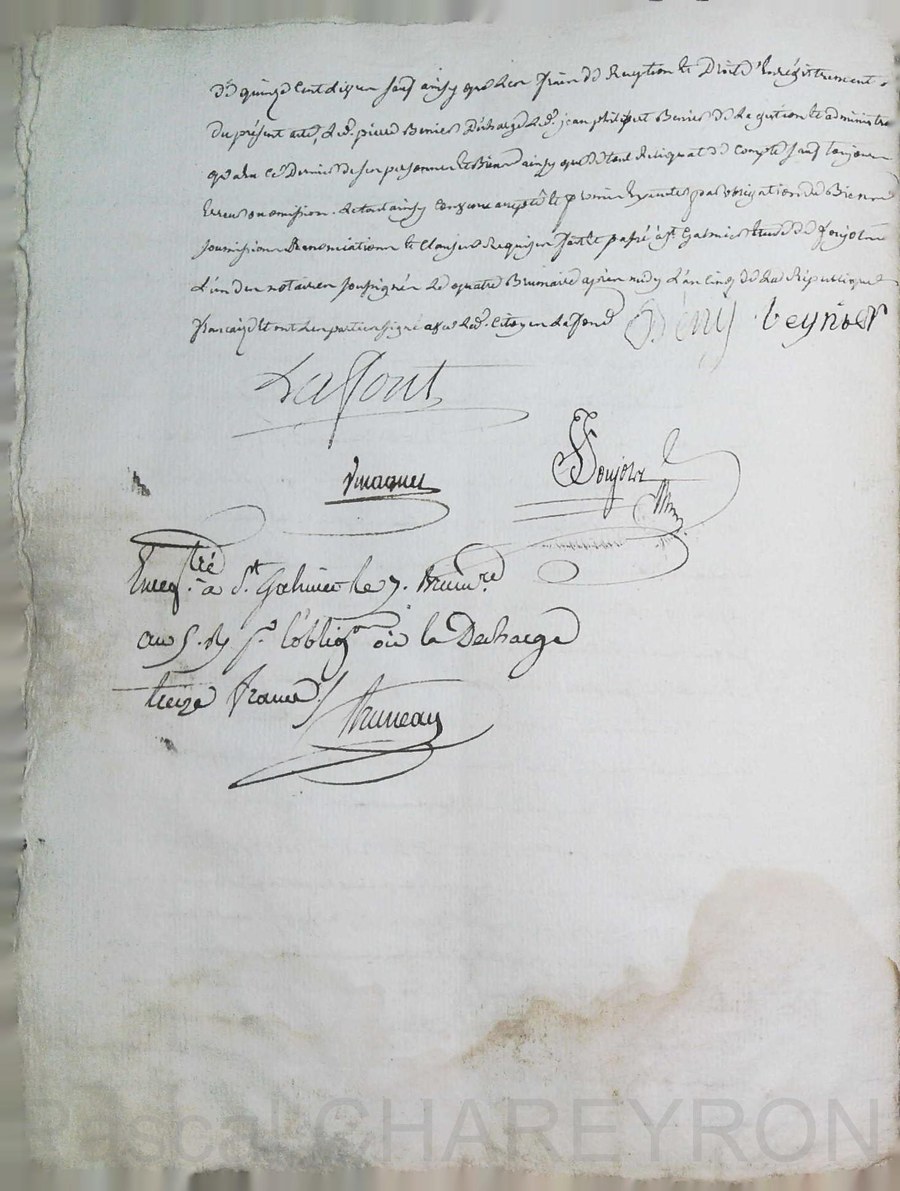 de quinze cent dix un sauf ainsy que les frais de reception et Droits d'enregistrement
du présent acte, led. pierre Benier décharge led. jean philipert Benier de la gestion et administra
qu'a eu ce Dernier de ses personne et Biens ainsy que de tout reliquat de compte sauf toujours
erreur ou omission. le tout ainsy convenu accepté et promis exécuter par obligation de Biens
soumission Renonciation et clauses Requises fait et passé a St Galmier étude de Soujolon
L'un des notaires soussignés Le quatre Brumaire après midy L'an cinq de La République
française et ont les parties signé avec led. citoyen Lafond Bény beynier
Laffont
Vinagues
Soujolon
Enregtré à St Galmier le 7. Brumre
au 5. Ry pr l'obligon et la Decharge
treize francs
Bruneau
Pascal CHAREYRON